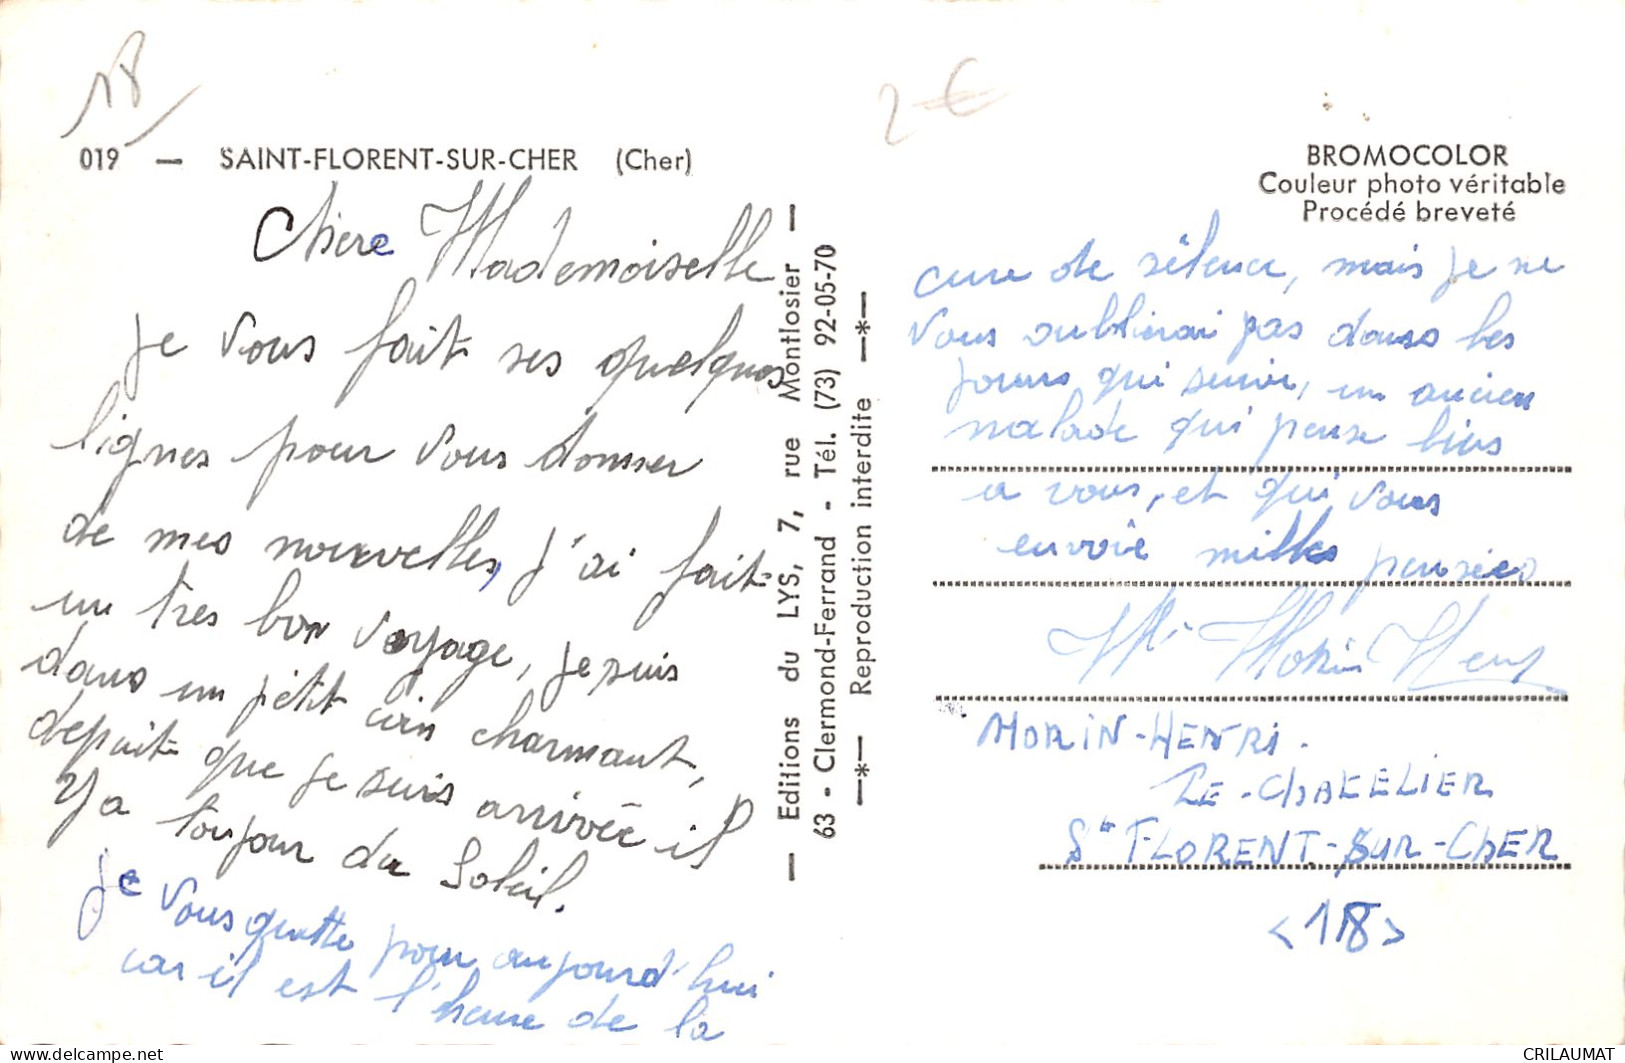 18
2 €
019 — SAINT-FLORENT-SUR-CHER (Cher)
Chère Mademoiselle
je vous fait ses quelques
lignes pour vous donner
de mes nouvelles, j'ai fait
un très bon voyage, je suis
dans un pétit coin charmant,
depuit que je suis arrivée il
y a toujour du Soleil.
je vous quitte pour aujourd'hui
car il est l'heure de la
— Editions du LYS, 7, rue Montlosier —
63 - Clermond-Ferrand - Tél. (73) 92-05-70
—*— Reproduction interdite —*—
BROMOCOLOR
Couleur photo véritable
Procédé breveté
cure de silence, mais je ne
vous oublierai pas dans les
jours qui suive, un ancien
malade qui pense bien
a vous, et qui vous
envoie milles pensées
Mr Morin Henri
MORIN-HENRI.
LE-CHATELIER
St FLORENT-SUR-CHER
<18>
delcampe.net
CRILAUMAT